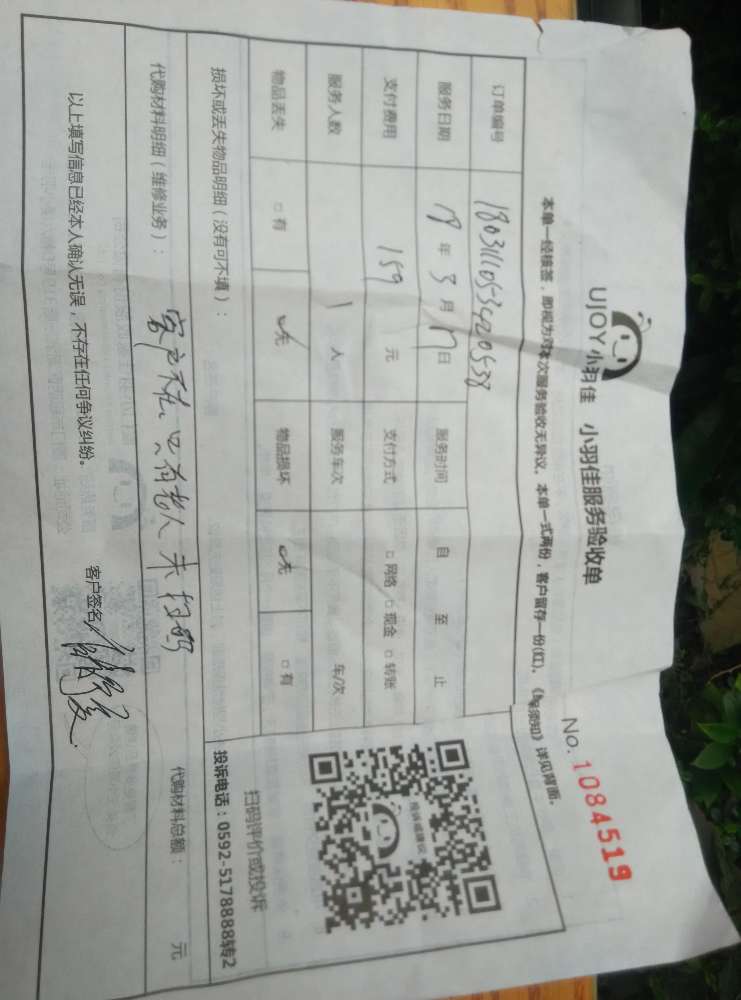 UJOY小羽佳 小羽佳服务验收单
No. 1084519
本单一经核签，即视为对本次服务验收无异议，本单一式两份，客户留存一份(红)，《须知》详见背面。
订单编号 180311053420538
服务日期 年 3 月 日 服务时间 自 至 止
支付费用 159 元 支付方式 □网络 □现金 □转账
服务人数 1 人 服务车次 车/次
物品丢失 □有 ☑无 物品损坏 ☑无 □有
投诉或建议
扫码评价或投诉
损坏或丢失物品明细（没有可不填）：
投诉电话：0592-5178888转2
代购材料明细（维修业务）： 客户不在，只有老人 未扫码
代购材料总额： 元
以上填写信息已经本人确认无误，不存在任何争议纠纷。
客户签名